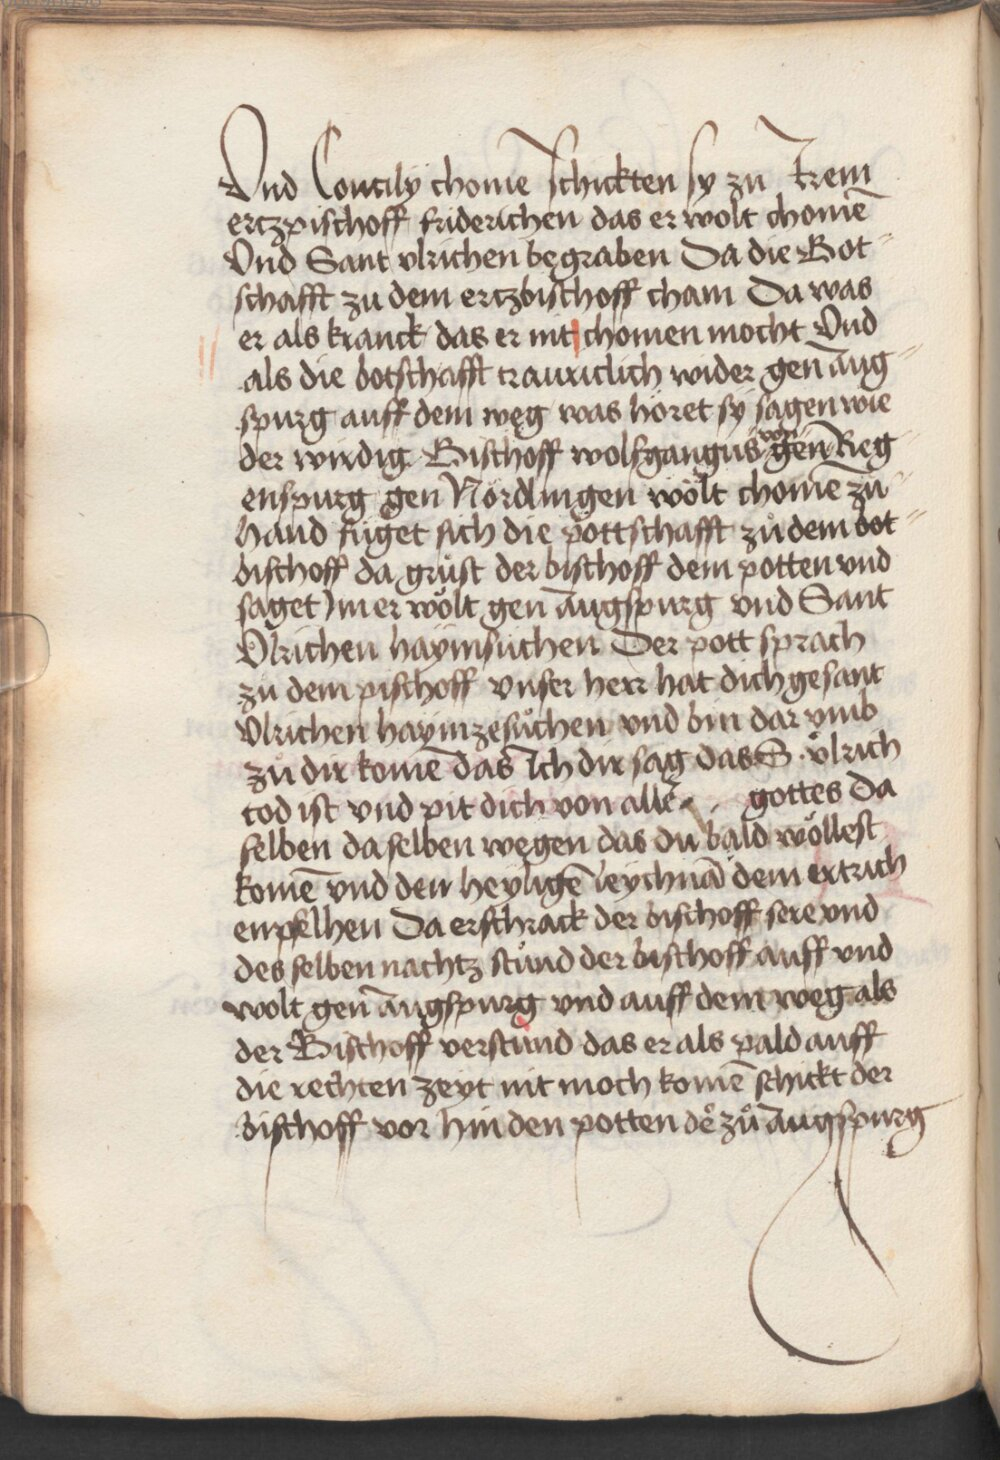 Vnd Concilÿ chome schickten sy zu Irem
ertzpischoff friderichen das er wolt chomē
Vnd Sant vlrichen begraben Da die Bot⸗
schafft zu dem ertzbischoff cham Da was
er als kranck das er nit chomen mocht Vnd
als die botschafft trauriclich wider gen aug⸗
spurg auff dem weg was höret sÿ sagen wie
der wirdig Bischoff wolfgangus von gen Reg⸗
enspurg gen Nördlingen wölt chome zu⸗
hand füget sich die pottschafft zů dem bot⸗
bischoff da grůst der bischoff dem potten vnd
saget Im er wölt gen augspurg vnd Sant
Vlrichen haÿmsuchen Der pott sprach
zu dem pischoff vnser herr hat dich gesant
Vlrichen haymzesůchen vnd bin dar vmb
zů dir komē das Ich dir sag das S. vͦlrich
tod ist vnd pit dich von allē gottes Da
selben daselben wegen das du bald wöllest
komē vnd den heyligē leychnā dem ertrich
enpfelhen Da erschrack der bischoff sere vnd
des selben nachtz stůnd der bischoff auff vnd
wolt gen augspurg vnd auff dem weg als
der Bischoff verstund das er als pald auff
die rechten zeyt nit moch komē schickt der
bischoff vor hin den potten dē zů augspurg